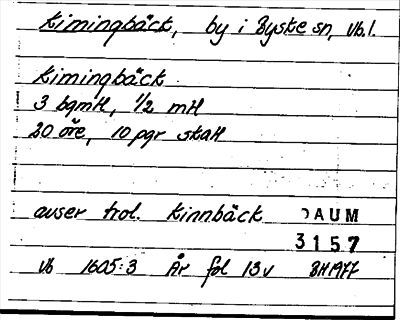 Kimingbäck, by i Byske sn, Vb.l.
Kimingbäck
3 bgmH, 1/2 mH
20 öre, 10 pgr skaH
avser trol. Kinnbäck
DAUM
3157
Vb 1605:3 År fol 13v BH1977